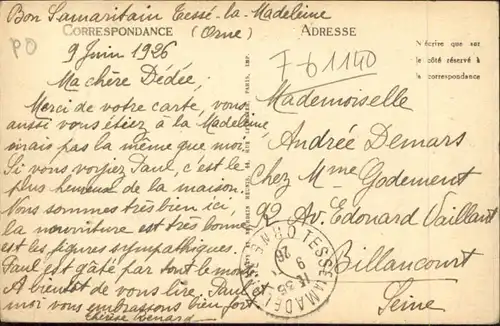 Bon Samaritain Tessé-la-Madeleine
(Orne)
PO
CORRESPONDANCE
9 Juin 1926
Ma chère Dédée,
Merci de votre carte, vous
aussi vous étiez à la Madeleine,
mais pas la même que moi.
Si vous voyiez Paul, c'est le
plus heureux de la maison.
Nous sommes très bien ici,
la nourriture est très bonne
et les figures sympathiques.
Paul est gâté par tout le monde
A bientôt de vous lire, Paul et
moi vous embrassons bien fort
Thérèse Renard
ADRESSE
N'écrire que sur
le côté réservé à
la correspondance
7-61140
Mademoiselle
Andrée Demars
Chez Mme Godement
92 Av. Edouard Vaillant
Billancourt
Seine
TESSÉ LA MADEL
ORNE
9
26